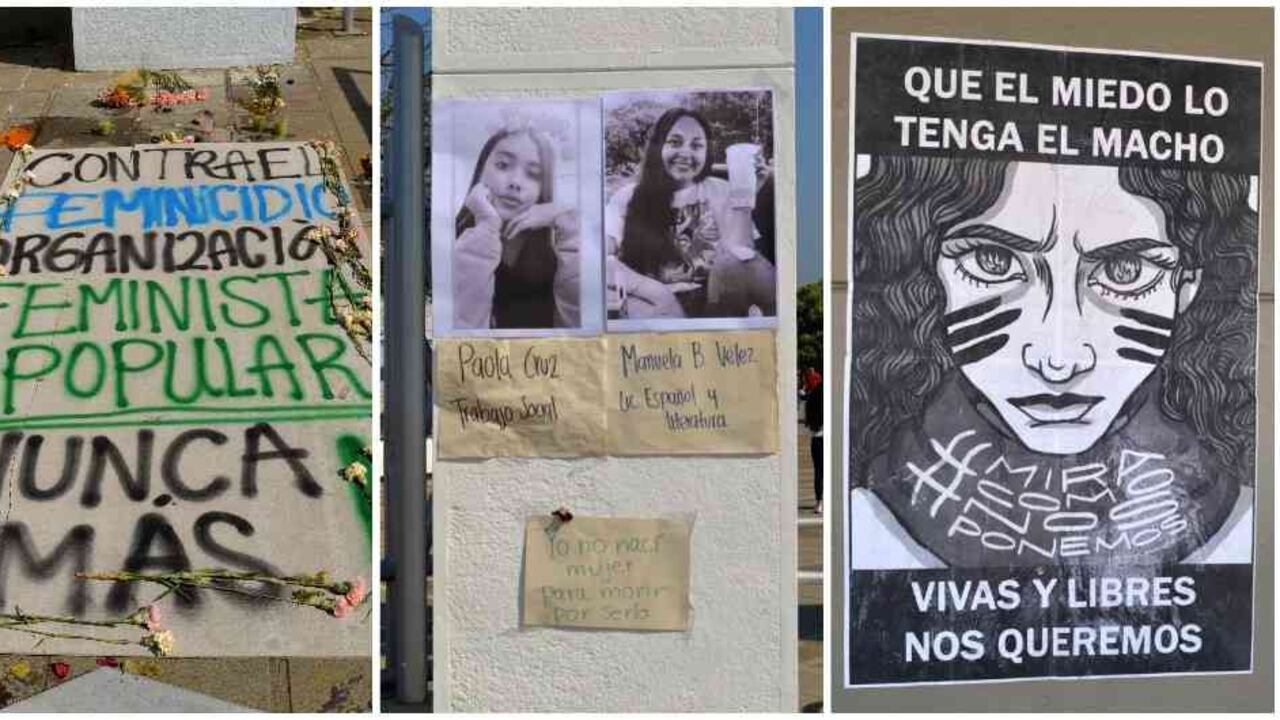 CONTRA EL
FEMINICIDIO
ORGANIZACIÓ
FEMINISTA
POPULAR
NUNCA
MÁS
Paola Cruz
Trabajo Social
Manuela B. Vélez
Lic. Español y
literatura
Yo no nací
mujer
para morir
por serlo
QUE EL MIEDO LO
TENGA EL MACHO
#MIRA
COMO
NOS
PONEMOS
VIVAS Y LIBRES
NOS QUEREMOS